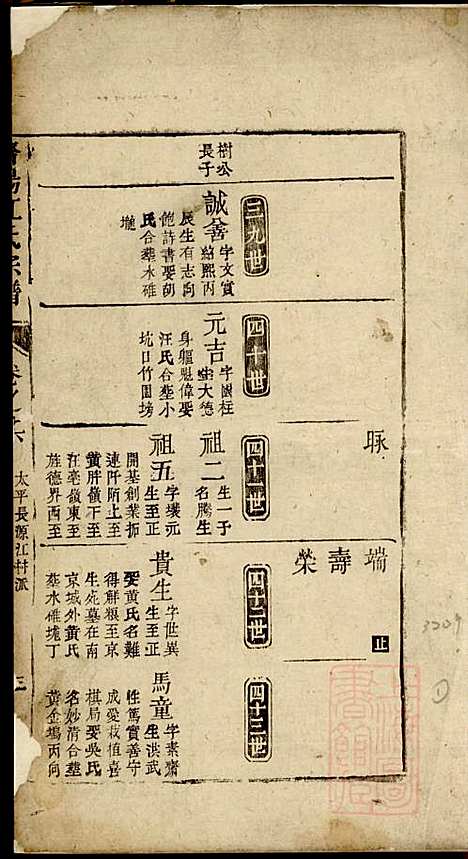 樹公
長子
三九世
誠善
字文實
紹熙丙
辰生有志向
飽詩書娶胡
氏合塟水碓
壠
四十世
元吉
字國柱
生大德
身軀魁偉娶
汪氏合塟小
坑口竹園塝
脉
四十一世
祖二
生一子
名勝生
祖五
字壤元
生至正
開基創業拆
連阡陌上至
黄胖嶺下至
在亳嶺東至
旌德界西至
端
壽
榮
止
四十二世
貴生
字世異
生至正
娶黄氏名難
得解糧至京
生苑墓在南
京域外黄氏
塟水碓壠丁
四十三世
馬童
字素齋
生洪武
性篤實善守
成愛栽植喜
棋局娶吳氏
名妙清合塟
黄金塢丙向
濟陽江氏宗譜
卷之六
太平長源江村派
三